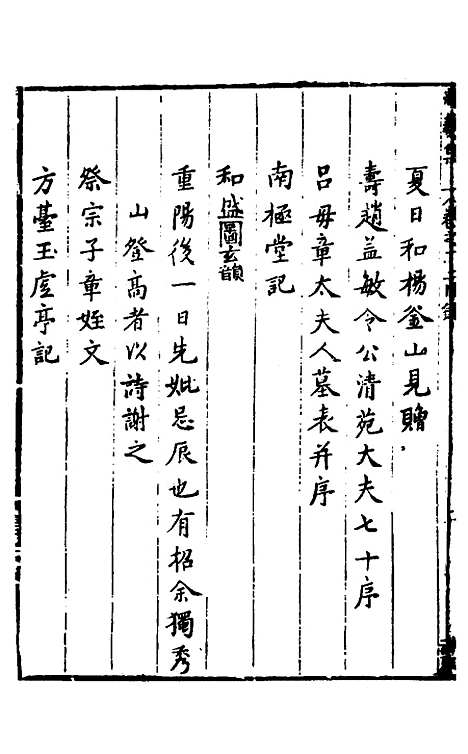 夏日和楊釜山見贈
壽趙益敏令公清苑大夫七十序
呂母章太夫人墓表并序
南極堂記
和盛圖玄韻
重陽後一日先妣忌辰也有招余獨秀
山登高者以詩謝之
祭宗子章姪文
方臺玉虛亭記